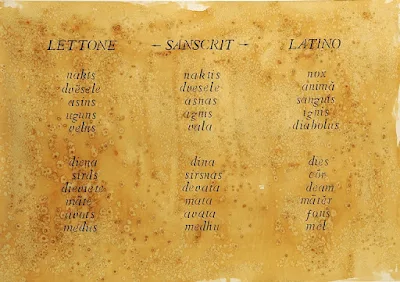 LETTONE – SANSCRIT – LATINO
nakts naktis nox
dvēsele dvēsele animā
asins asnas sanguis
uguns agnis ignis
velns vala diabolus
diena dina dies
sirds sirsnas cŏr
dieviete devata deam
māte mata matĕr
avots avata fons
medus medhu mel